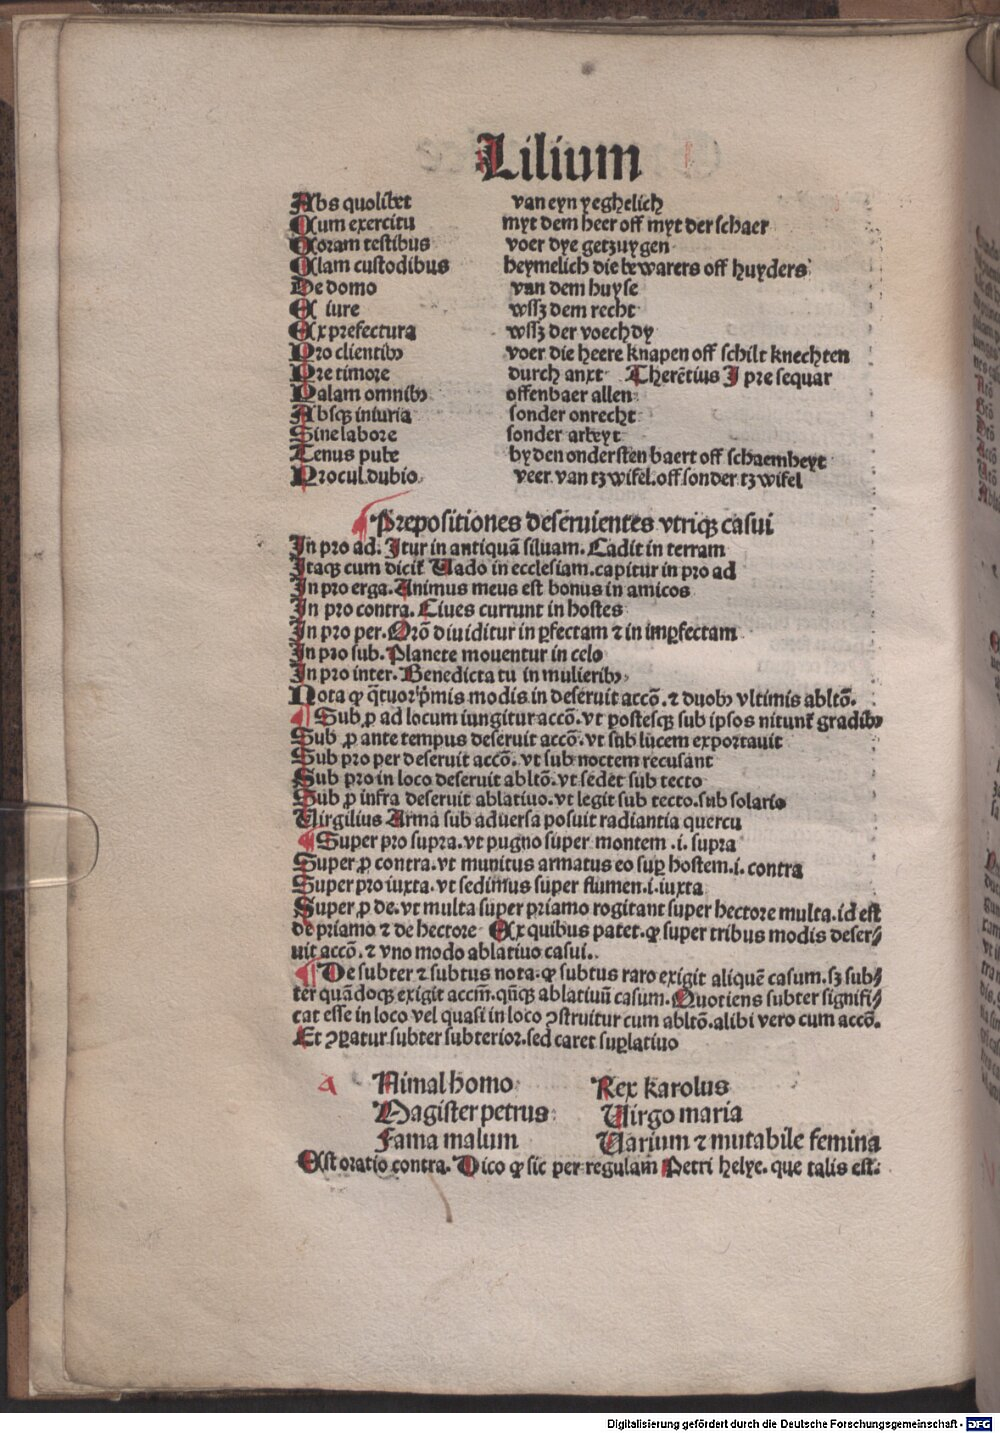 Lilium
Abs quolibet van eyn yeghelich
Cum exercitu myt dem heer off myt der schaer
Coram testibus voer dye getzuygen
Clam custodibus heymelich die bewarers off huyders
De domo van dem huyse
E iure wssz dem recht
Ex prefectura wssz der voechdy
Pro clientibꝫ voer die heere knapen off schilt knechten
Pre timore durch anxt Therētius I pre sequar
Palam omnibꝫ offenbaer allen
Absqꝫ iniuria sonder onrecht
Sine labore sonder arbeyt
Tenus pube by den ondersten baert off schaemheyt
Procul dubio veer van tzwifel. off sonder tzwifel
Prepositiones deseruientes vtriqꝫ casui
In pro ad. Itur in antiquā siluam. Cadit in terram
Itaqꝫ cum dicit᷑ Uado in ecclesiam. capitur in pro ad
In pro erga. Animus meus est bonus in amicos
In pro contra. Ciues currunt in hostes
In pro per. Orō diuiditur in ꝑfectam ⁊ in imꝑfectam
In pro sub. Planete mouentur in celo
In pro inter. Benedicta tu in mulieribꝫ
Nota ꝙ q̄tuor p̄mis modis in deseruit accō. ⁊ duobꝫ vltimis abltō.
¶ Sub ꝓ ad locum iungitur accō. vt postesqꝫ sub ipsos nitunt᷑ gradibꝫ
Sub ꝓ ante tempus deseruit accō. vt sub lucem exportauit
Sub pro per deseruit accō. vt sub noctem recusant
Sub pro in loco deseruit abltō. vt sedet sub tecto
Sub ꝓ infra deseruit ablatiuo. vt legit sub tecto. sub solario
Uirgilius Arma sub aduersa posuit radiantia quercu
¶ Super pro supra. vt pugno super montem .i. supra
Super ꝓ contra. vt munitus armatus eo suꝑ hostem .i. contra
Super pro iuxta. vt sedimus super flumen .i. iuxta
Super ꝓ de. vt multa super priamo rogitant super hectore multa. id est
de priamo ⁊ de hectore Ex quibus patet. ꝙ super tribus modis deser⸗
uit accō. ⁊ vno modo ablatiuo casui.
¶ De subter ⁊ subtus nota. ꝙ subtus raro exigit aliquē casum. sꝫ sub⸗
ter quādoqꝫ exigit accm̄. qn̄qꝫ ablatiuū casum. Quotiens subter signifi⸗
cat esse in loco vel quasi in loco ꝯstruitur cum abltō. alibi vero cum accō.
Et ꝯꝑatur subter subterior. sed caret suꝑlatiuo
a Nimal homo Rex karolus
Magister petrus Uirgo maria
Fama malum Uarium ⁊ mutabile femina
Est oratio contra. Dico ꝙ sic per regulam Petri helye. que talis est.
Digitalisierung gefördert durch die Deutsche Forschungsgemeinschaft - DFG